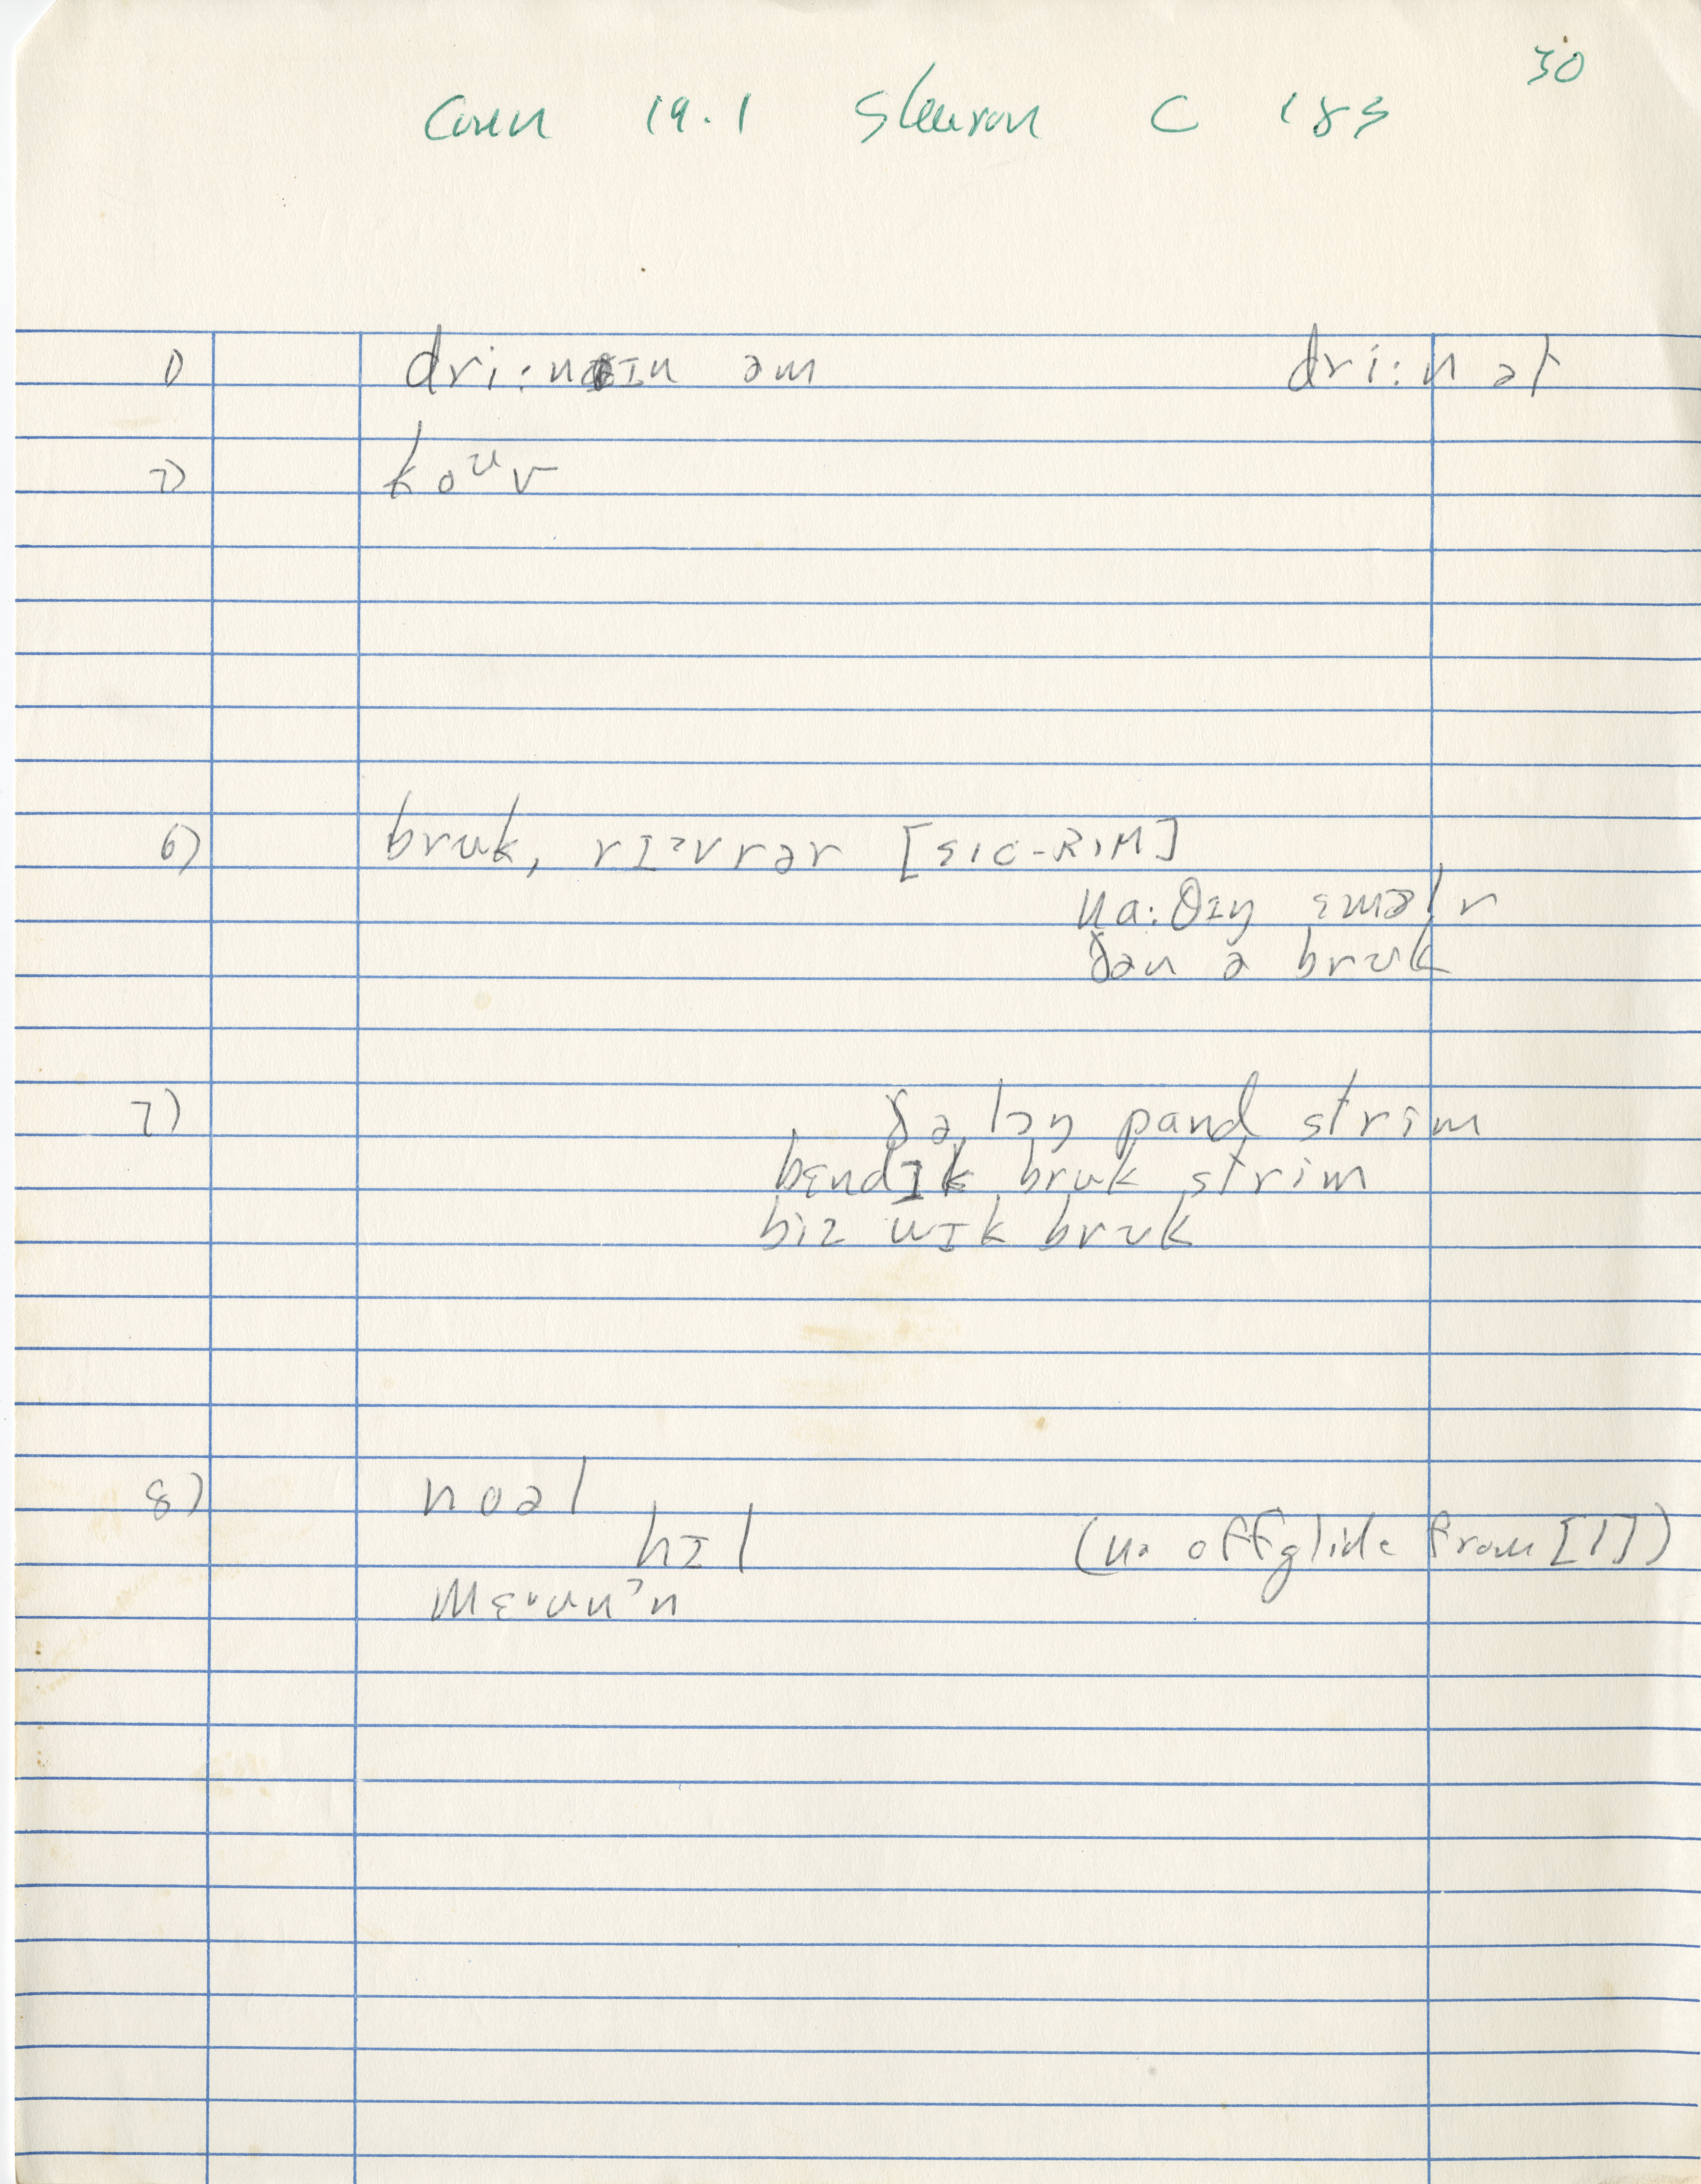 30
Conn 19.1 Sharon C 185
1) dri:nɪn əm dri:n ət
2) koᵘv
6) bruk, rɪᵊvrər [sic-RIM]
na:θɪŋ ɛmɔlr
ðən ə bruk
7) ðə lɔŋ pand strim
bɛndɪk bruk strim
biz wɪk bruk
8) noəl
hɪl (no offglide from [l])